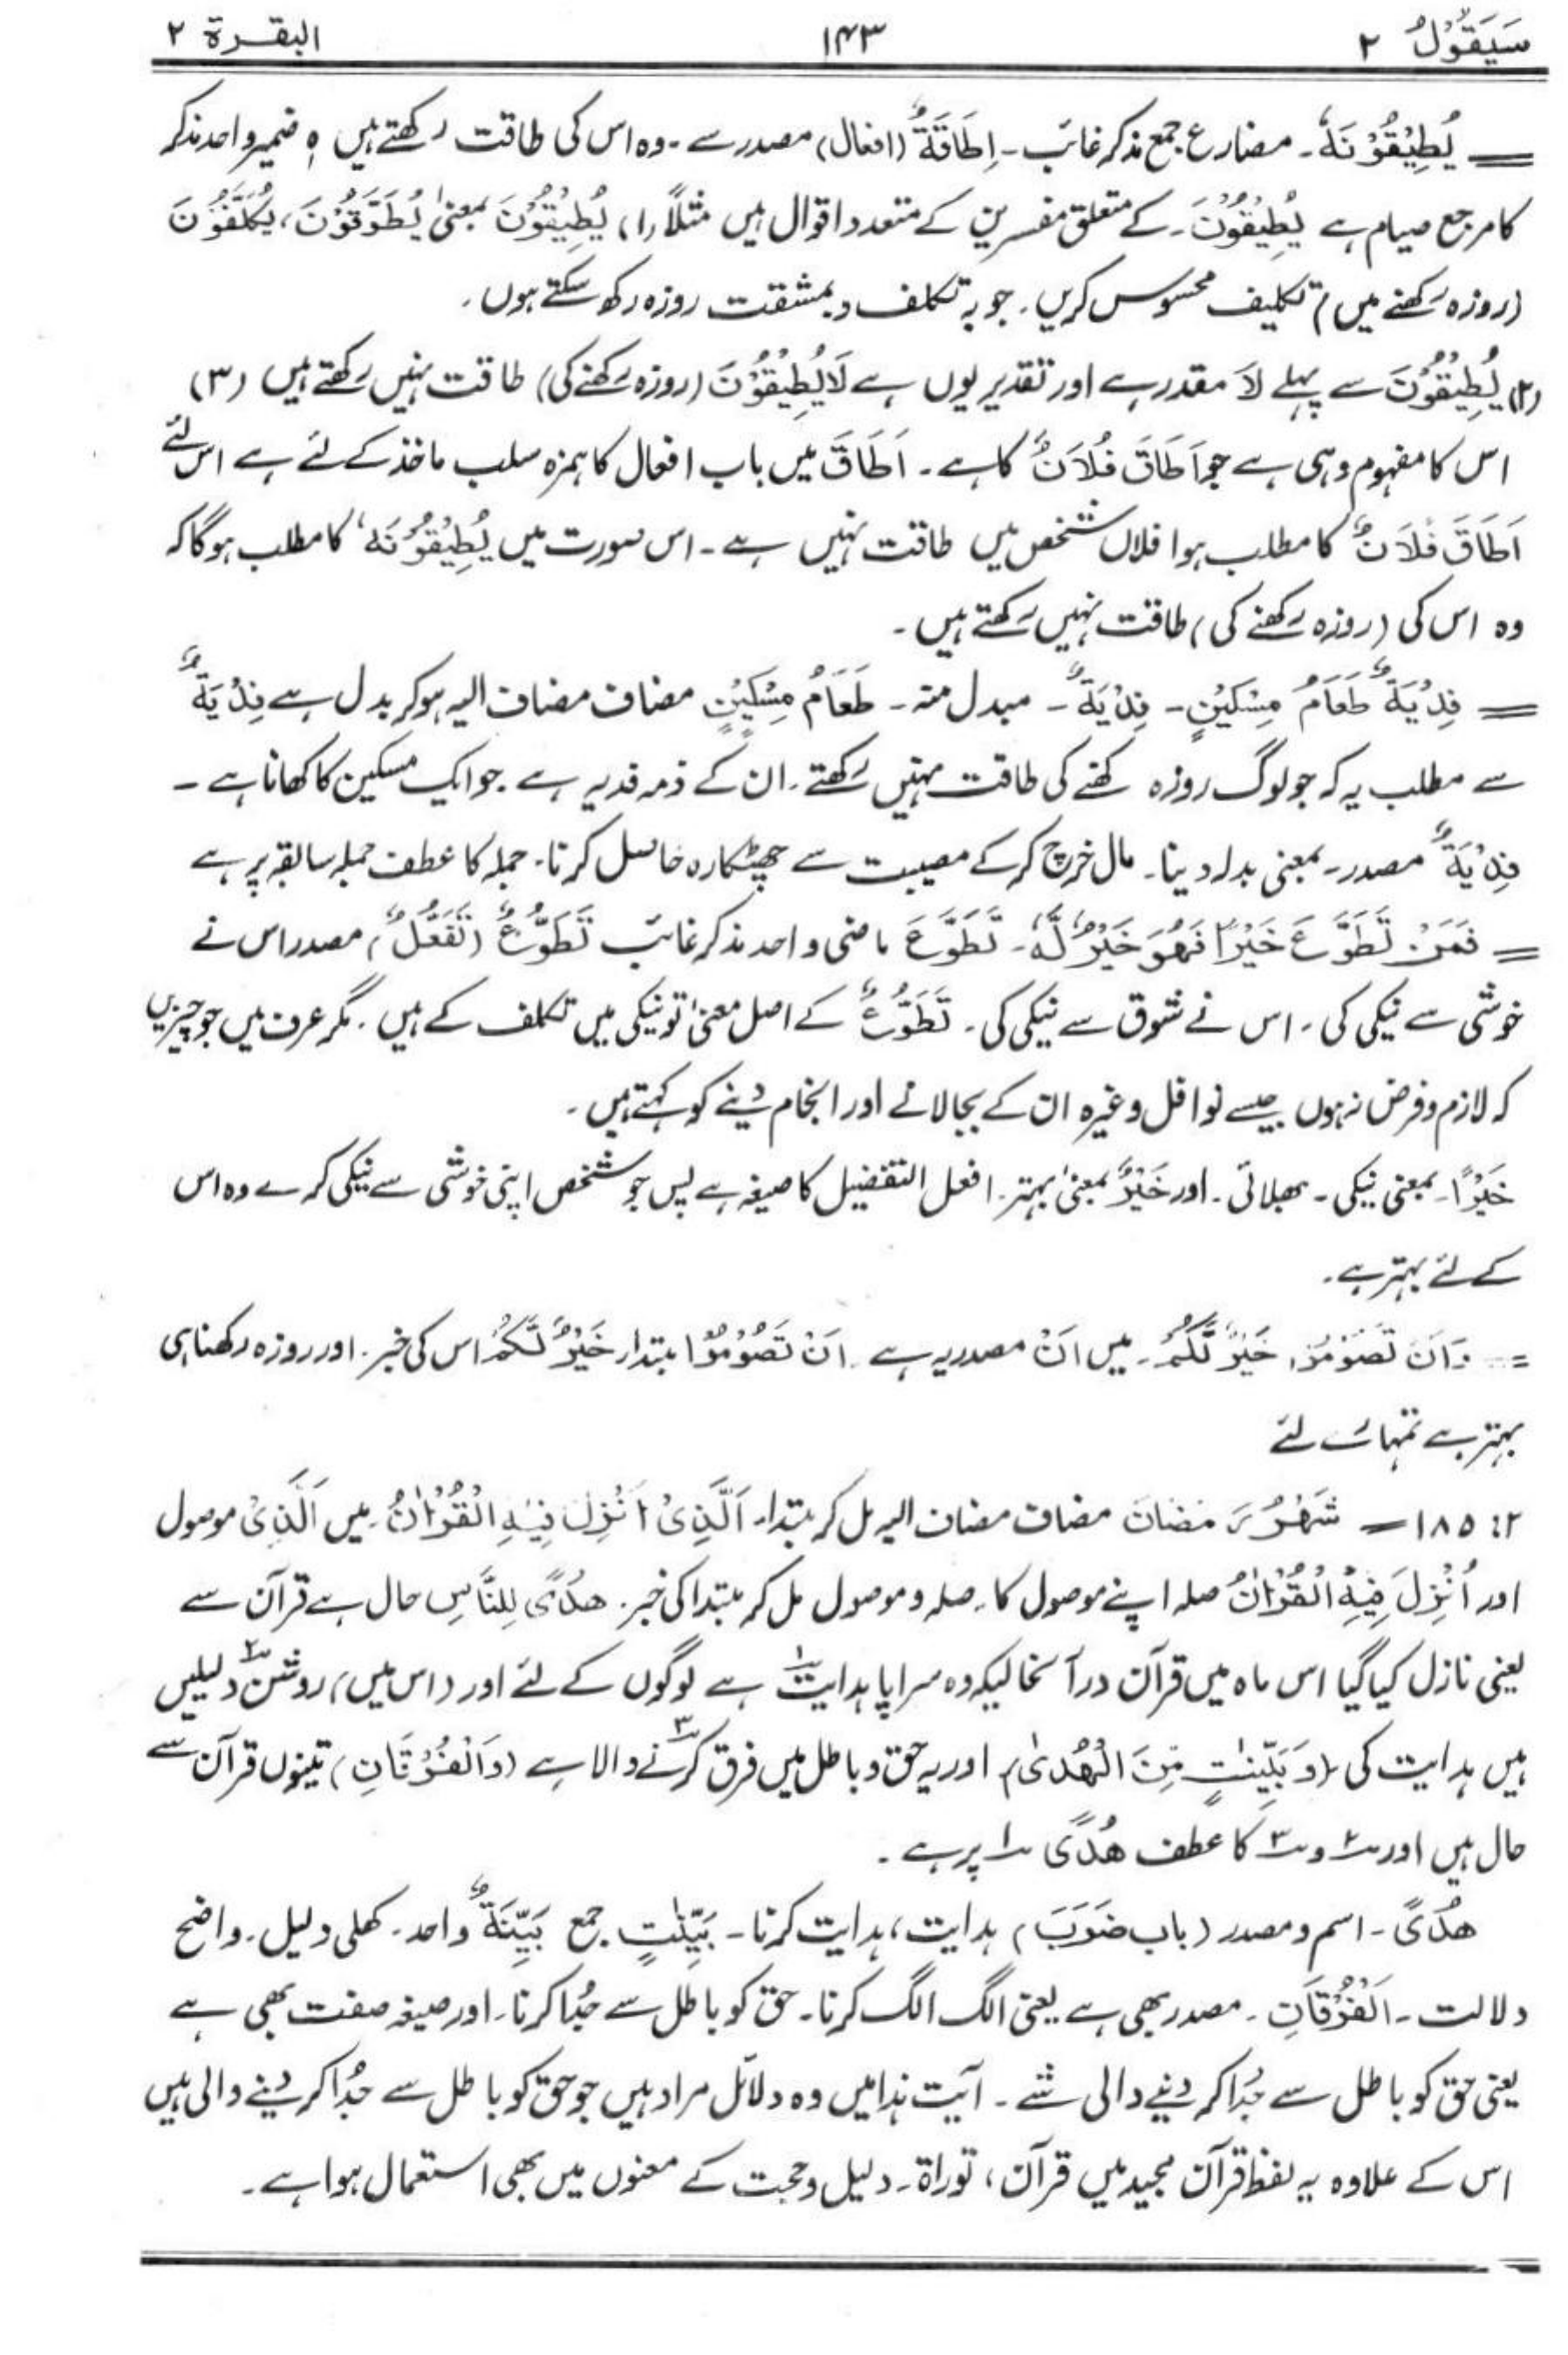 سَيَقُوْلُ ۲ ۱۴۳ البقرة ۲
= يُطِيْقُوْنَهٗ۔ مضارع جمع مذکر غائب۔ اِطَاقَةٌ (افعال) مصدر سے۔ وہ اس کی طاقت رکھتے ہیں ہٖ ضمیر واحد مذکر
کا مرجع صیام ہے يُطِيْقُوْنَ۔ کے متعلق مفسرین کے متعدد اقوال ہیں مثلاً (۱) يُطِيْقُوْنَ بمعنیٰ يُطَوَّقُوْنَ، يُكَلَّفُوْنَ
(روزہ رکھنے میں) تکلیف محسوس کریں۔ جو بہ تکلف و بمشقت روزہ رکھ سکتے ہوں۔
(۲) يُطِيْقُوْنَ سے پہلے لاَ مقدر ہے اور تقدیر یوں ہے لاَ يُطِيْقُوْنَ (روزہ رکھنے کی) طاقت نہیں رکھتے ہیں (۳)
اس کا مفہوم وہی ہے جو اَطَاقَ فُلاَنٌ کا ہے۔ اَطَاقَ میں باب افعال کا ہمزہ سلب ماخذ کے لئے ہے اس لئے
اَطَاقَ فُلاَنٌ کا مطلب ہوا فلاں شخص میں طاقت نہیں ہے۔ اس صورت میں يُطِيْقُوْنَهٗ کا مطلب ہوگا کہ
وہ اس کی (روزہ رکھنے کی) طاقت نہیں رکھتے ہیں۔
= فِدْيَةٌ طَعَامُ مِسْكِيْنٍ۔ فِدْيَةٌ۔ مبدل منہ۔ طَعَامُ مِسْكِيْنٍ مضاف مضاف الیہ ہوکر بدل ہے فِدْيَةٌ
سے مطلب یہ کہ جو لوگ روزہ کھنے کی طاقت نہیں رکھتے۔ ان کے ذمہ فدیہ ہے جو ایک مسکین کا کھانا ہے۔
فِدْيَةٌ مصدر۔ بمعنی بدلہ دینا۔ مال خرچ کرکے مصیبت سے چھٹکارہ حاصل کرنا۔ جملہ کا عطف جملہ سابقہ پر ہے
= فَمَنْ تَطَوَّعَ خَيْرًا فَهُوَ خَيْرٌ لَّهٗ۔ تَطَوَّعَ ماضی واحد مذکر غائب تَطَوُّعٌ (تَفَعُّلٌ) مصدر اس نے
خوشی سے نیکی کی۔ اس نے شوق سے نیکی کی۔ تَطَوُّعٌ کے اصل معنیٰ تو نیکی میں تکلف کے ہیں۔ مگر عرف میں جو چیزیں
کہ لازم و فرض نہ ہوں جیسے نوافل وغیرہ ان کے بجا لانے اور انجام دینے کو کہتے ہیں۔
خَيْرًا۔ بمعنی نیکی۔ بھلائی۔ اور خَيْرٌ بمعنیٰ بہتر۔ افعل التفضیل کا صیغہ ہے پس جو شخص اپنی خوشی سے نیکی کرے وہ اس
کے لئے بہتر ہے۔
= وَاَنْ تَصُوْمُوْا خَيْرٌ لَّكُمْ۔ میں اَنْ مصدریہ ہے۔ اَنْ تَصُوْمُوْا مبتدا۔ خَيْرٌ لَّكُمْ اس کی خبر۔ اور روزہ رکھنا ہی
بہتر ہے تمہارے لئے
۲: ۱۸۵ = شَهْرُ رَمَضَانَ مضاف مضاف الیہ مل کر مبتدا۔ اَلَّذِيْ اُنْزِلَ فِيْهِ الْقُرْاٰنُ۔ میں اَلَّذِيْ موصول
اور اُنْزِلَ فِيْهِ الْقُرْاٰنُ صلہ اپنے موصول کا۔ صلہ و موصول مل کر مبتدا کی خبر۔ هُدًى لِلنَّاسِ حال ہے قرآن سے
یعنی نازل کیا گیا اس ماہ میں قرآن درآنحالیکہ وہ سراپا ہدایت۱ ہے لوگوں کے لئے اور (اس میں) روشن۲ دلیلیں
ہیں ہدایت کی (وَبَيِّنٰتٍ مِّنَ الْهُدٰى) اور یہ حق و باطل میں فرق کرنے۳ والا ہے (وَالْفُرْقَانِ) تینوں قرآن سے
حال ہیں اور ۲ و ۳ کا عطف هُدًى ۱ پر ہے۔
هُدًى۔ اسم و مصدر (باب ضَرَبَ) ہدایت، ہدایت کرنا۔ بَيِّنٰتٍ جمع بَيِّنَةٌ واحد۔ کھلی دلیل۔ واضح
دلالت۔ اَلْفُرْقَانِ۔ مصدر بھی ہے یعنی الگ الگ کرنا۔ حق کو باطل سے جُدا کرنا۔ اور صیغہ صفت بھی ہے
یعنی حق کو باطل سے جُدا کر دینے والی شے۔ آیت ہٰذا میں وہ دلائل مراد ہیں جو حق کو باطل سے جُدا کر دینے والی ہیں
اس کے علاوہ یہ لفظ قرآن مجید میں قرآن، توراۃ۔ دلیل و حجت کے معنوں میں بھی استعمال ہوا ہے۔